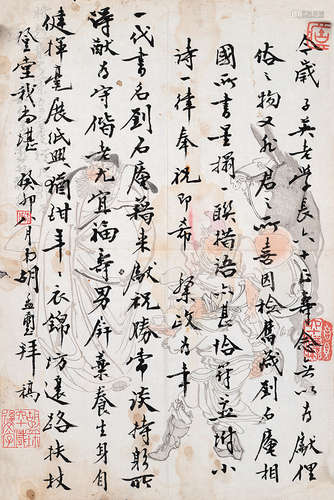 今歲子英老學長六十三壽念無以為獻俚
俗之物又非君之所喜因檢舊藏劉石庵相
國所書墨搨一聯措語亦甚恰符並附小
詩一律奉祝即希 粲政為幸
一代書名劉石庵藉來獻祝勝常談持躬能
得猷為守偕老尤宜福壽男餅藥養生身自
健揮毫展紙興猶酣年年衣錦訪遠路扶杖
登堂我尚堪 癸卯 月弟胡 拜稿